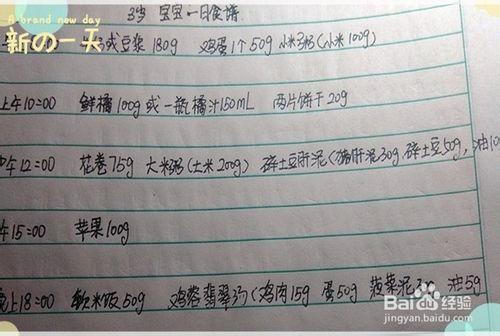 A brand new day
新の一天
3岁 宝宝一日食谱
或豆浆 180g 鸡蛋1个50g 小米粥(小米100g)
上午10:00 鲜橘100g或一瓶橘汁150mL 两片饼干20g
午12:00 花卷75g 大米粥(大米200g) 碎土豆肝泥(猪肝泥30g,碎土豆50g,油10
午15:00 苹果100g
晚上18:00 软米饭50g 鸡蓉翡翠 (鸡肉15g 蛋50g 菠菜泥30g 油5g
Baidu 经验
jingyan.baidu.com